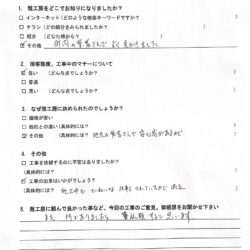 1. 雅工房をどこでお知りになりましたか?
□ インターネット (どのような検索キーワードですか? )
□ チラシ (どの部分をみられましたか? )
□ 紹介 (どなた様から? )
☑ その他 の業者さんで よく 見かけました
2. 接客態度、工事中のマナーについて
☑ 良い (どんな点でしょうか? )
□ 普通
□ 悪い (どんな点でしょうか? )
3. なぜ雅工房に決められたのでしょうか?
□ 価格が安い
□ 他社との違い (具体的には? )
☑ その他 (具体的には? 地元の業者さんで安心感があるので )
4. その他
□ 工事を依頼するのに不安はありましたか?
(具体的には? )
☑ 工事の出来はいかがでしょうか?
(具体的には? 満足
5. 雅工房に頼んで良かった事など、今回の工事のご意見、御感想をお聞かせ下さい
また 何かありましたら お願い すると思います